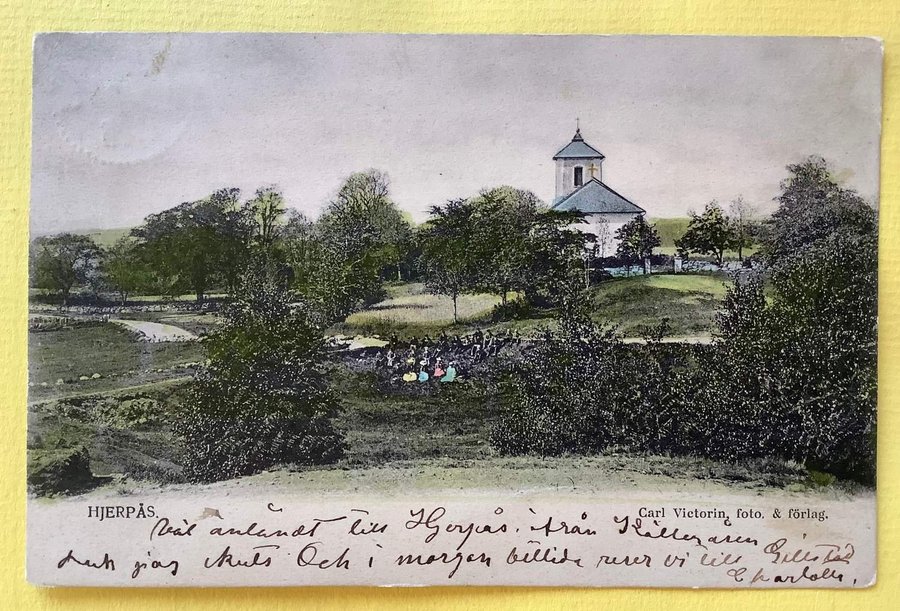 HJERPÅS.
Carl Victorin, foto. & förlag.
Väl anländt till Hjerpås. ifrån Källegåren
jag skuts Och i morgon bittida reser vi till Gillstad
Charlott.